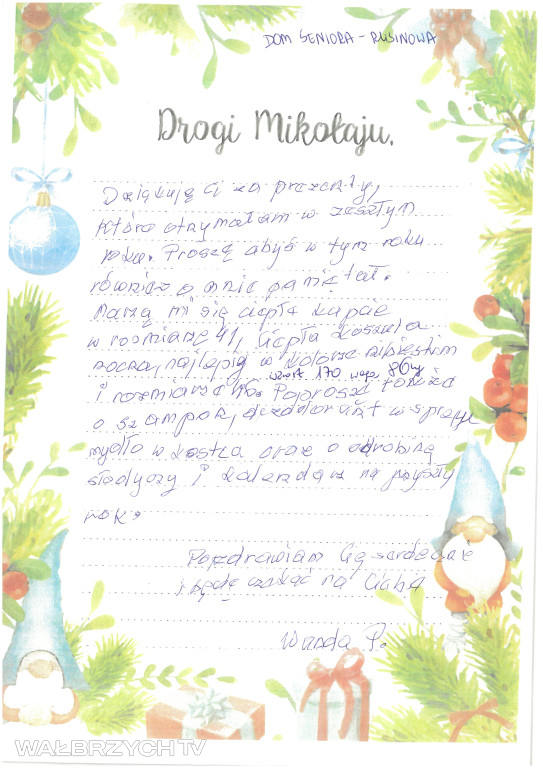 DOM SENIORA - RUSINOWA
Drogi Mikołaju,
Dziękuję Ci za prezenty,
które otrzymałam w zeszłym
roku. Proszę abyś w tym roku
również o mnie pamiętał.
Marzą mi się ciepłe kapcie
w rozmiarze 41, ciepła koszula
nocna, najlepiej w kolorze niebieskim
wzrost 170 waga 86kg
i rozmiarze Poproszę także
o szampon, dezodorant w sprayu
mydło w kostce oraz o odrobinę
słodyczy i kalendarz na przyszły
rok.
Pozdrawiam Cię serdecznie
i będę czekać na Ciebie
Wanda P.
WAŁBRZYCH TV